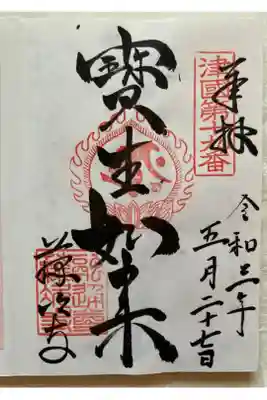 奉拝
津國第十九番
寶生如来
令和三年
五月二十七日
藤次寺